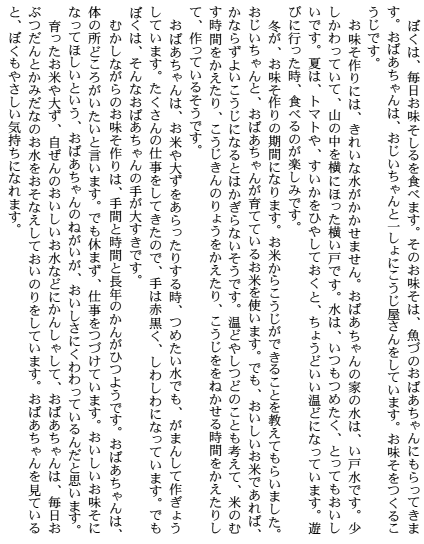 ぼくは、毎日お味そしるを食べます。そのお味そは、魚づのおばあちゃんにもらってきま
す。おばあちゃんは、おじいちゃんと一しょにこうじ屋さんをしています。お味そをつくるこ
うじです。
お味そ作りには、きれいな水がかかせません。おばあちゃんの家の水は、い戸水です。少
しかわっていて、山の中を横にほった横い戸です。水は、いつもつめたく、とってもおいし
いです。夏は、トマトや、すいかをひやしておくと、ちょうどいい温どになっています。遊
びに行った時、食べるのが楽しみです。
冬が、お味そ作りの期間になります。お米からこうじができることを教えてもらいました。
おじいちゃんと、おばあちゃんが育てているお米を使います。でも、おいしいお米であれば、
かならずよいこうじになるとはかぎらないそうです。温どやしつどのことも考えて、米のむ
す時間をかえたり、こうじきんのりょうをかえたり、こうじををねかせる時間をかえたりし
て、作っているそうです。
おばあちゃんは、お米や大ずをあらったりする時、つめたい水でも、がまんして作ぎょう
しています。たくさんの仕事をしてきたので、手は赤黒く、しわしわになっています。でも
ぼくは、そんなおばあちゃんの手が大すきです。
むかしながらのお味そ作りは、手間と時間と長年のかんがひつようです。おばあちゃんは、
体の所どころがいたいと言います。でも休まず、仕事をつづけています。おいしいお味そに
なってほしいという、おばあちゃんのねがいが、おいしさにくわわっているんだと思います。
育ったお米や大ず、自ぜんのおいしいお水などにかんしゃして、おばあちゃんは、毎日お
ぶつだんとかみだなのお水をおそなえしておいのりをしています。おばあちゃんを見ている
と、ぼくもやさしい気持ちになれます。